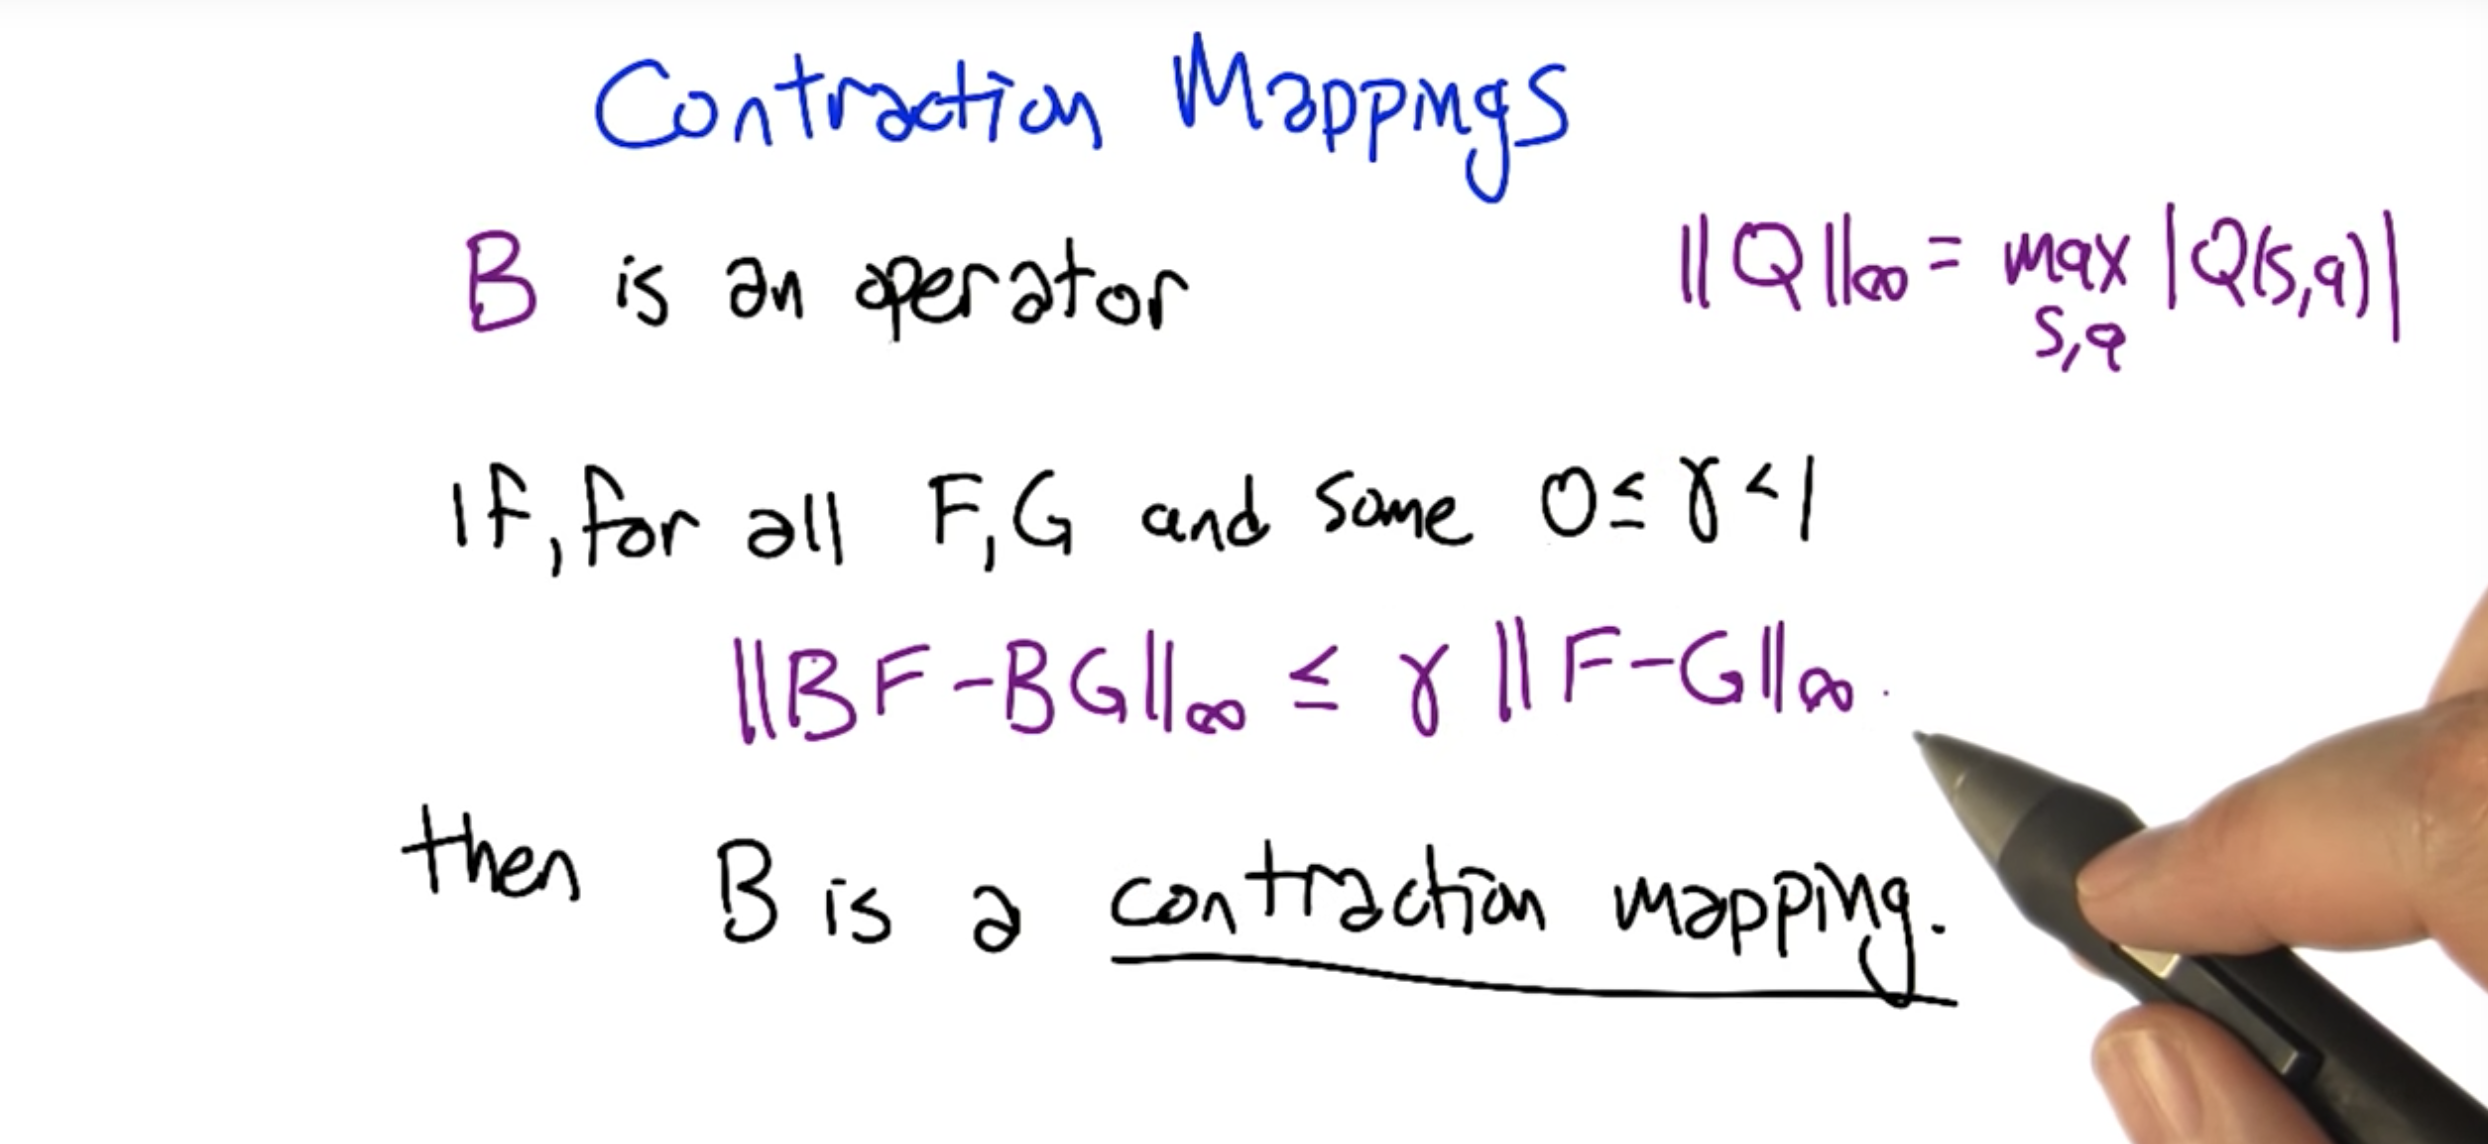 Contraction Mappings
B is an operator
||Q||∞ = max |Q(s,a)|
s,a
If, for all F,G and some 0 ≤ γ < 1
||BF - BG||∞ ≤ γ ||F - G||∞.
then B is a contraction mapping.